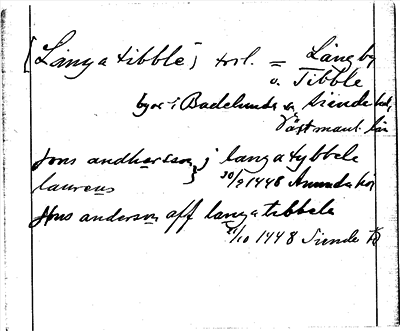 [Långatibble] trol. = Långby
o. Tibble
byar i Badelunda o. Siende hd,
Västmanl. län
Jons andhersson } j langatybbele
laurens 30/9 1448 Ananda
Jöns anderson aff langatebbele
1/10 1448 Siende